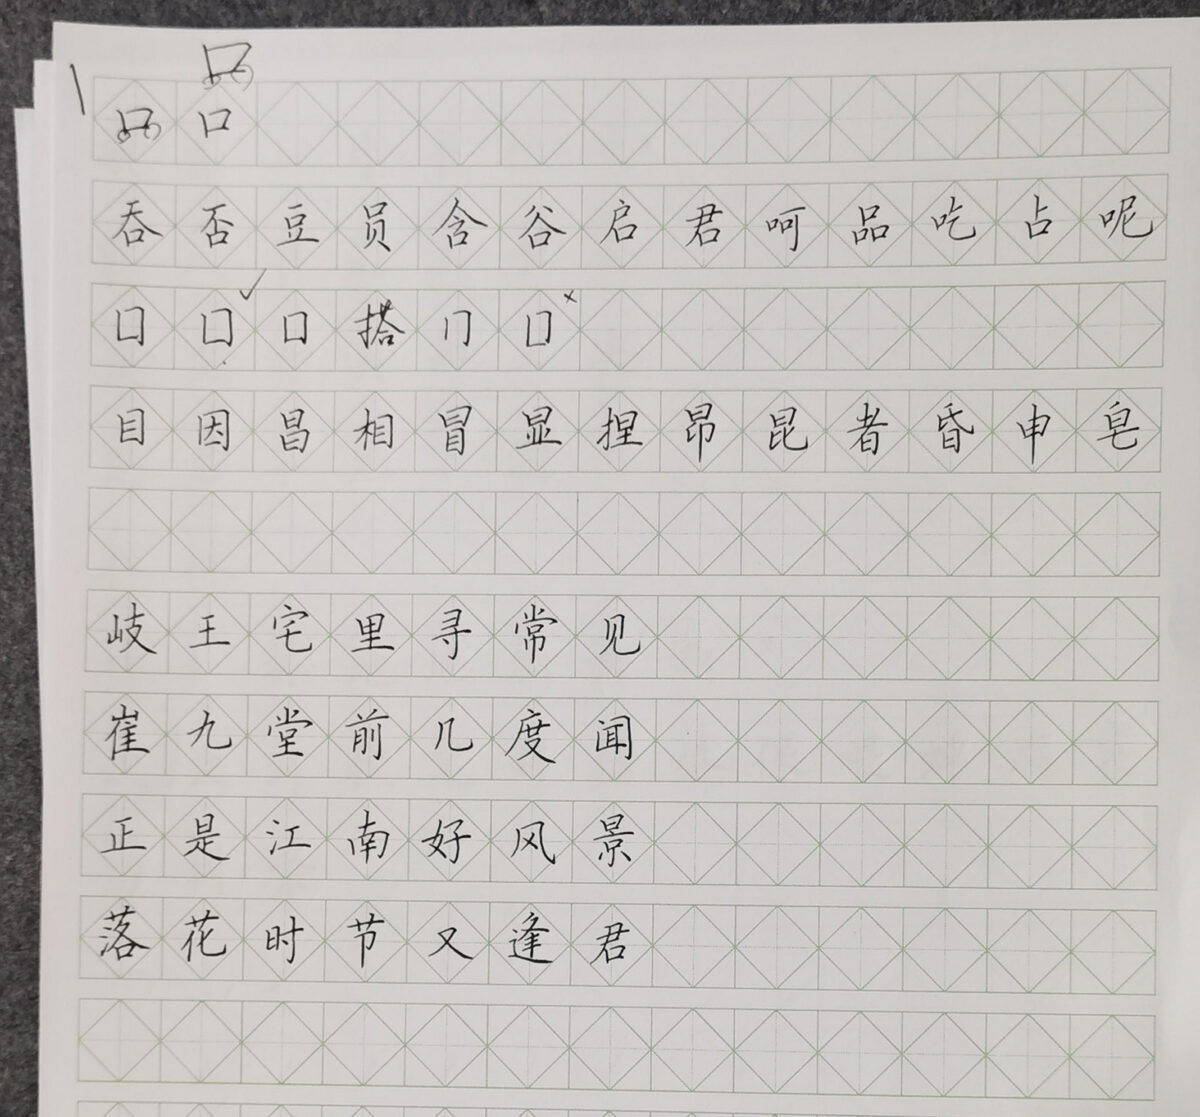 口
口 口
吞否豆员含谷启君呵品吃占呢
口口口搭冂口
目因昌相冒显捏昂昆者昏申皂
岐王宅里寻常见
崔九堂前几度闻
正是江南好风景
落花时节又逢君